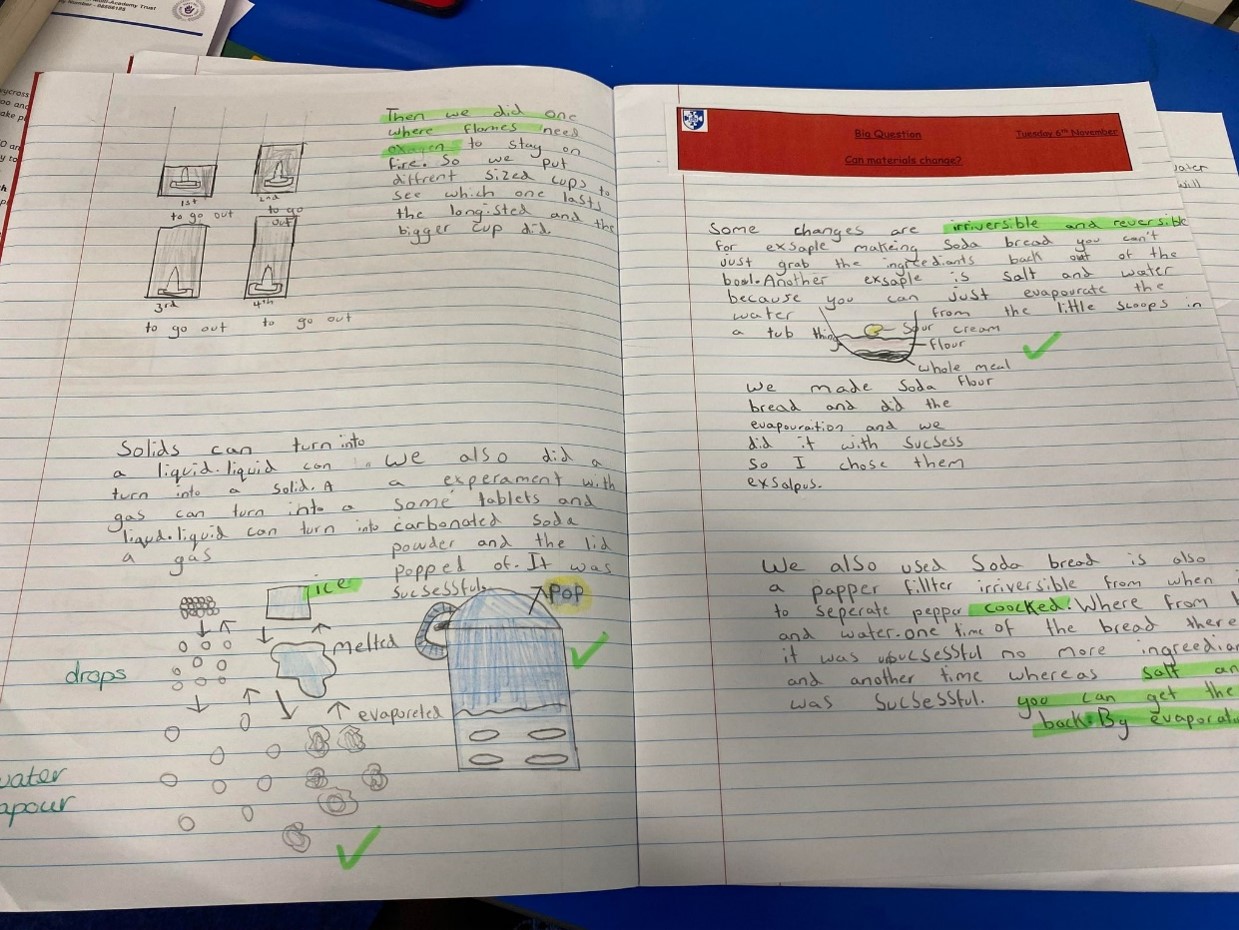 Academy Trust
Number - 08806185
Then we did one
where flames need
oxagen to stay on
fire. So we put
diffrent sized cups to
see which one lasts
the longisted and the
bigger cup did.
1st
to go out
2nd
to go
out
3rd
to go out
4th
to go out
Solids can turn into
a liquid. liquid can
turn into a solid. A
gas can turn into a
liqud. liquid can turn into
a gas
We also did a
a experament with
some tablets and
carbonated soda
powder and the lid
popped of. It was
sucsessful.
ice
pop
melted
drops
evaporeted
water
apour
Big Question
Tuesday 6th November
Can materials change?
Some changes are irriversible and reversible
for exsaple makeing Soda bread you can't
just grab the ingreediants back out of the
bowl. Another exsaple is salt and water
because you can just evapourate the
water from the little scoops in
a tub thing
Sour cream
flour
whole meal
We made Soda flour
bread and did the
evapouraition and we
did it with sucsess
so I chose them
exsalpus.
We also used
a papper fillter
to seperate pepper
and water. one time
it was unsucsessful
and another time
was sucsessful.
Soda bread is also
irriversible from when
coocked. Where from
of the bread there
no more ingreedian
whereas salt an
you can get the
back. By evaporat
water
will